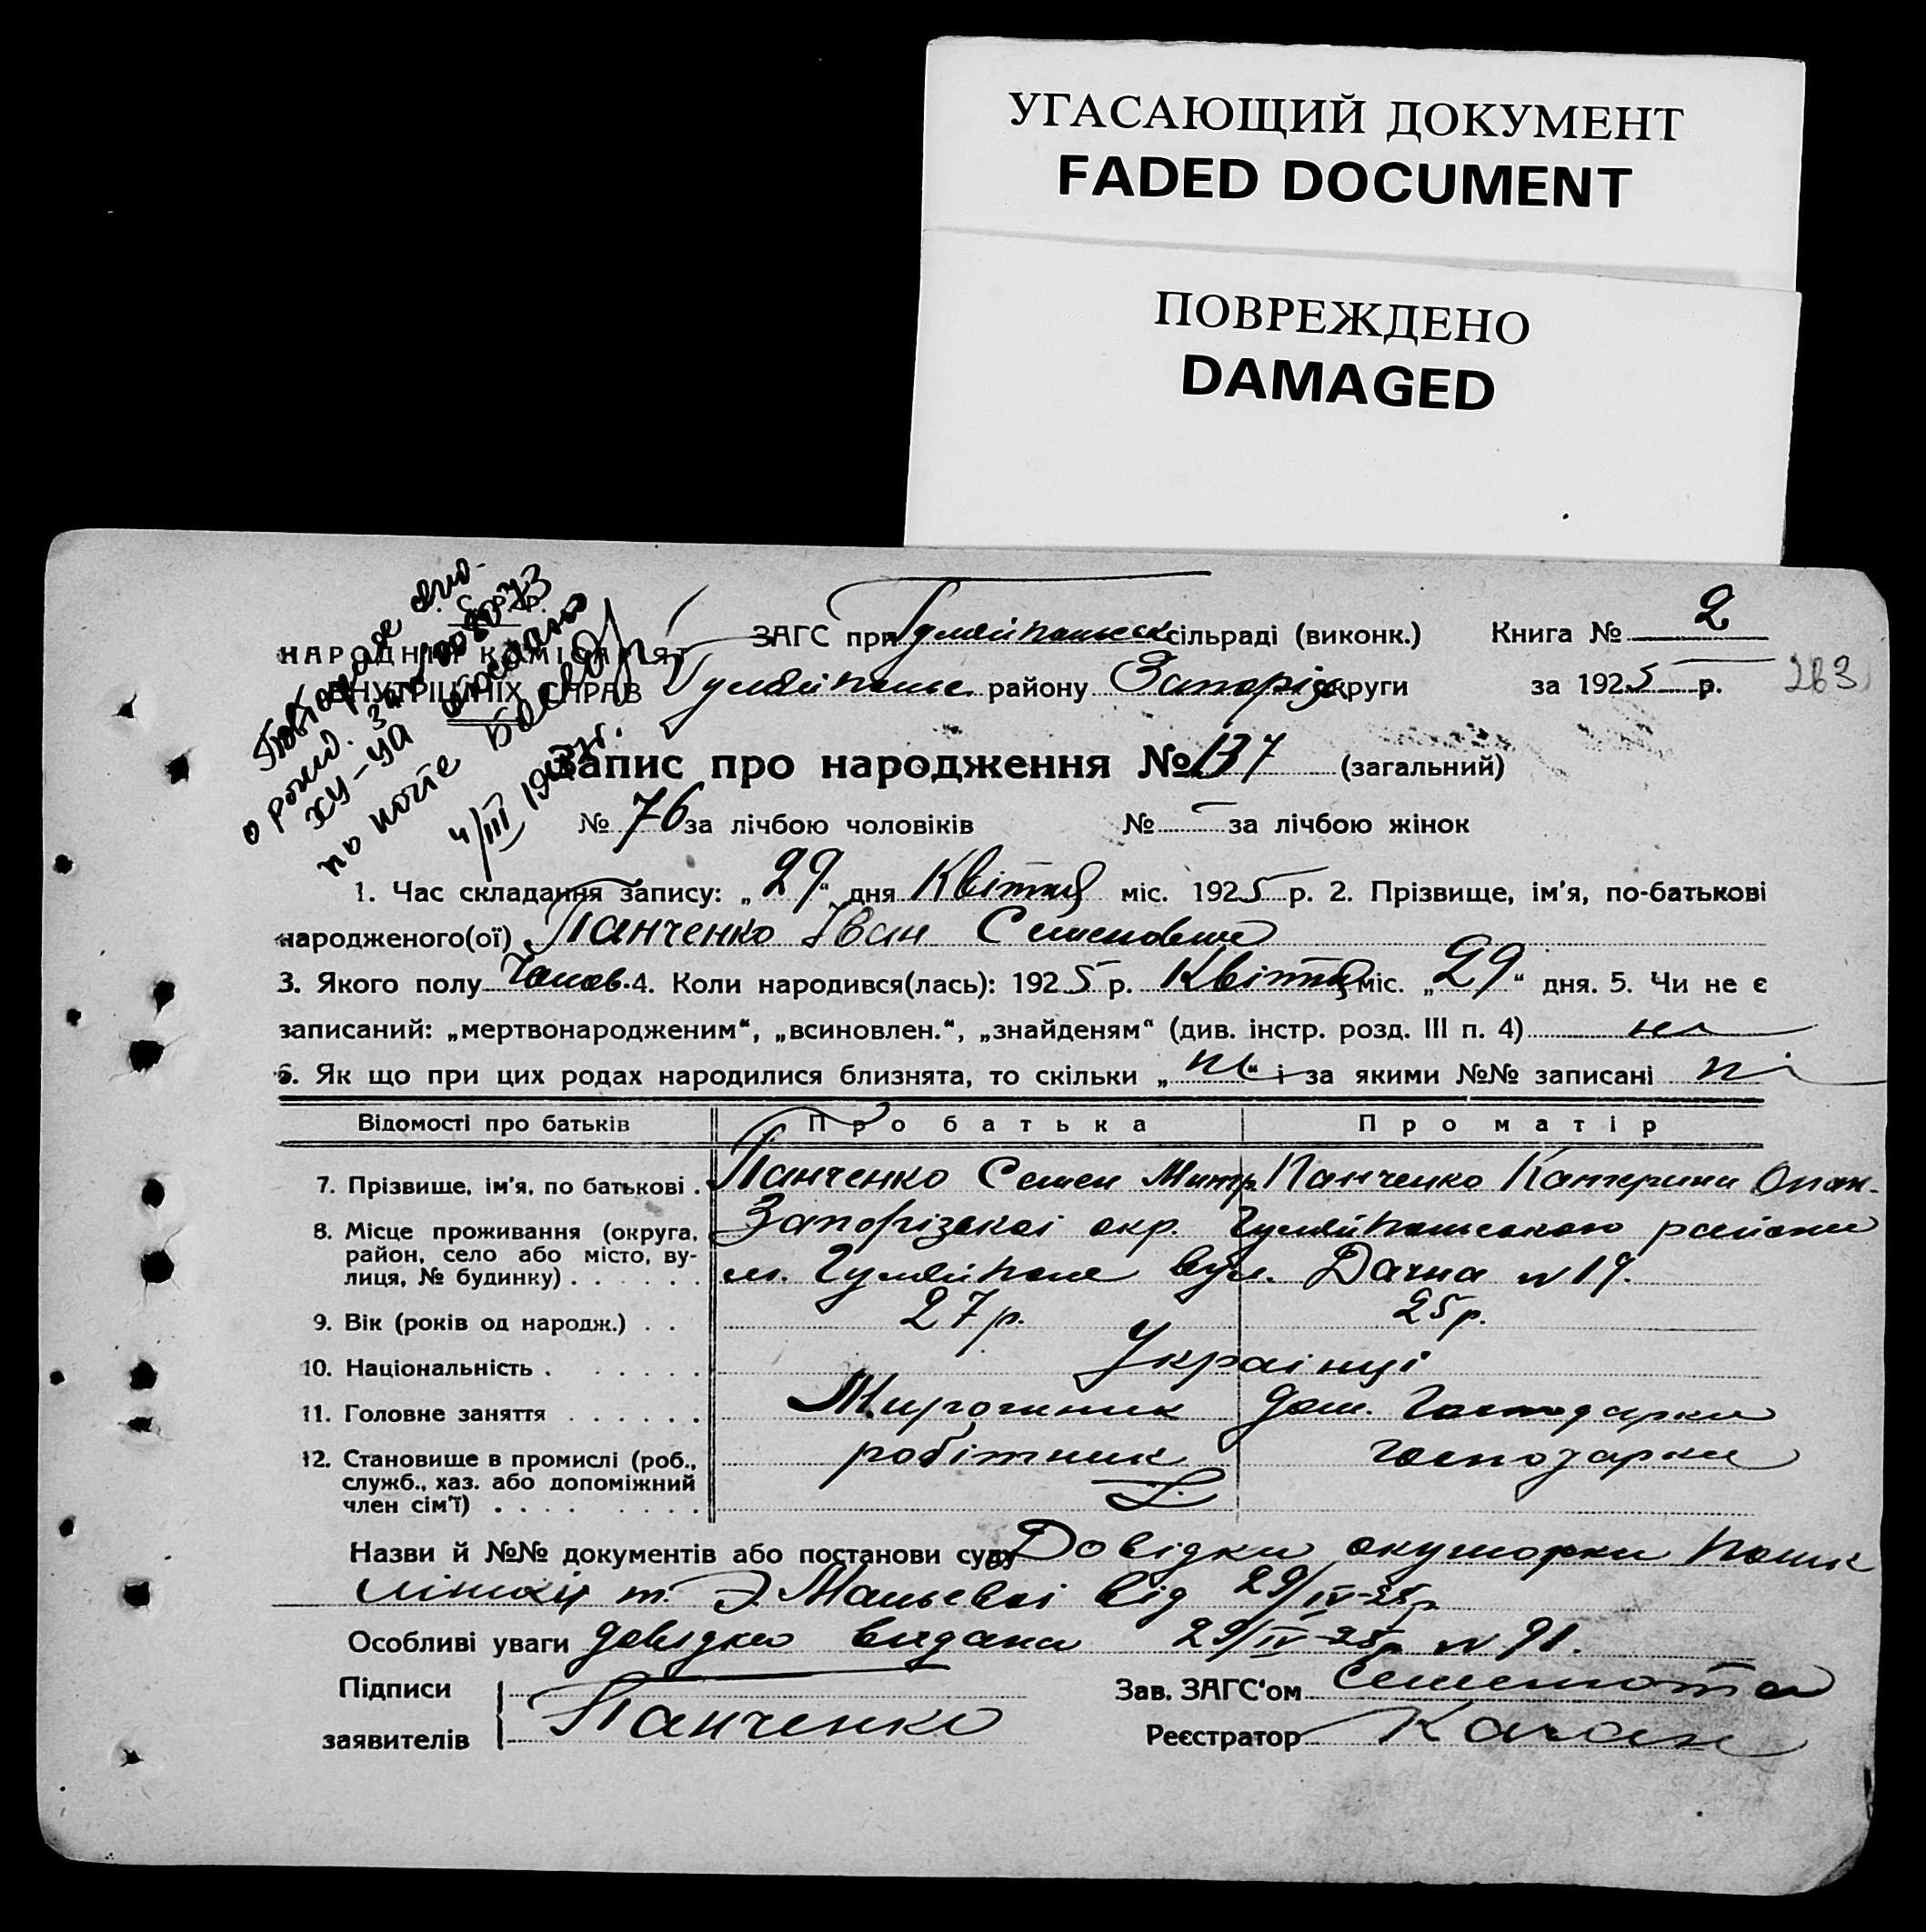 УГАСАЮЩИЙ ДОКУМЕНТ
FADED DOCUMENT
ПОВРЕЖДЕНО
DAMAGED
У. С. Р. Р.
НАРОДНІЙ КОМІСАРІЯТ
ВНУТРІШНІХ СПРАВ
Повторное
о рожд.
по почте
4/III
ЗАГС при Гуляйпольськ сільраді (виконк.) Книга № 2
Гуляйпільс району Запоріз округи за 1925 р. 263
Запис про народження № 137 (загальний)
№ 76 за лічбою чоловіків № – за лічбою жінок
1. Час складання запису: „29“ дня Квітня міс. 1925 р. 2. Прізвище, ім'я, по-батькові
народженого(ої) Панченко Іван Семенович
3. Якого полу Чолов. 4. Коли народився(лась): 1925 р. Квітня міс. „29“ дня. 5. Чи не є
записаний: „мертвонародженим“, „всиновлен.“, „знайденям“ (див. інстр. розд. III п. 4) ні
6. Як що при цих родах народилися близнята, то скільки „ні“ і за якими №№ записані ні
Відомості про батьків Про батька Про матір
7. Прізвище, ім'я, по батькові . Панченко Семен Митр. Панченко Катерина Опан.
8. Місце проживання (округа, Запорізької окр. Гуляйпольського району
район, село або місто, ву-
лиця, № будинку) . . . . . . м. Гуляйполе вул. Дачна № 19.
9. Вік (років од народж.) . . 27 р. 25 р.
10. Національність . . . . . . Українці
11. Головне заняття . . . . . . Мирошник дом. Господарка
12. Становище в промислі (роб., робітник господарка
служб., хаз. або допоміжний
член сім'ї) . . . . . . . . .
Назви й №№ документів або постанови суду Довідка акушорки полик
лініки т. Э. Мальевої від 29/IV-25р
Особливі уваги довідка видана 29/IV-25р № 91.
Підписи Зав. ЗАГС'ом
заявителів Панченко Реєстратор Качан